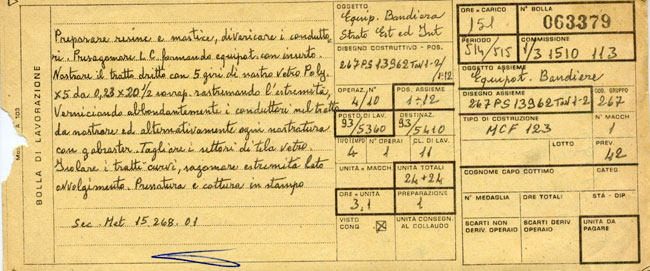 Mod. A 123
BOLLA DI LAVORAZIONE
Preparare resine e mastice, divaricare i condutto
ri. Presagomare L.C. formando equipot. con inserto.
Nastrare il tratto dritto con 5 giri di nastro Vetro Polyg.
×5 da 0,23×20 1/2 sovrap. rastremando l'estremità,
Verniciando abbondantemente i conduttori nel tratto
da nastrare ed alternativamente ogni nastratura
con
Tagliare i settori di tela vetro.
Isolare i tratti curvi, sagomare estremità lato
avvolgimento. Pressatura e cottura in stampo
Sec. Met 15.268.01
OGGETTO
Equip. Bandiera
Strato Est ed Int
DISEGNO COSTRUTTIVO - POS.
267PS13962 TW1-2/
1÷12
OPERAZ. N°
4/10
POS. ASSIEME
1÷12
POSTO DI LAV.
93/5340
DESTINAZ.
93/5410
TIPO TEMPO
4
N° OPERAI
1
CL. DI LAV.
11
UNITÀ x MACCH
UNITÀ TOTALI
24+24
ORE x UNITÀ
3,1
PREPARAZIONE
1
VISTO CONQ
UNITÀ CONSEGN. AL COLLAUDO
ORE A CARICO
151
N° BOLLA
063379
PERIODO
514/515
COMMISSIONE
1/3 1510 113
OGGETTO ASSIEME
Equipot. Bandiere
DISEGNO ASSIEME
267PS13962TW1-2/
COD. GRUPPO
267
TIPO DI COSTRUZIONE
MCF 123
N° MACCH
1
LOTTO
PREV.
42
COGNOME CAPO COTTIMO
CATEG.
N° MEDAGLIA
ORE TOTALI
STA - DIP.
SCARTI NON DERIV. OPERAIO
SCARTI DERIV. OPERAIO
UNITÀ DA PAGARE